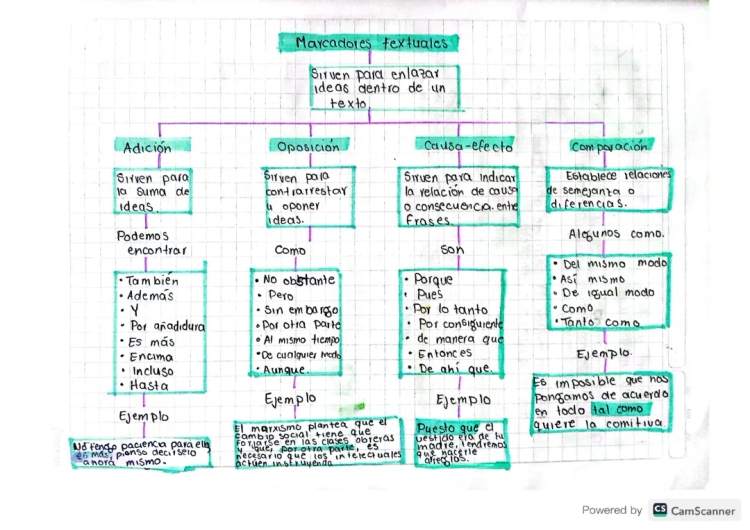 Marcadores textuales
Sirven para enlazar
ideas dentro de un
texto.
Adición
Sirven para
la suma de
ideas.
Podemos
encontrar
• También
• Además
• Y
• Por añadidura
• Es más
• Encima
• Incluso
• Hasta
Ejemplo
No tengo paciencia para ello
es más, pienso decirselo
ahora mismo.
Oposición
Sirven para
contrarrestar
u oponer
ideas.
Como
• No obstante
• Pero
• Sin embargo
• Por otra parte
• Al mismo tiempo
• De cualquier modo
• Aunque.
Ejemplo
El marxismo plantea que el
cambio social tiene que
forjarse en las clases obreras
y que, por otra parte, es
necesario que los intelectuales
actúen instruyendo
Causa-efecto
Sirven para indicar
la relación de causa
o consecuencia entre
frases.
Son
• Porque
• Pues
• Por lo tanto
• Por consiguiente
• de manera que
• Entonces
• De ahí que.
Ejemplo
Puesto que el
vestido era de tu
madre, tendremos
que hacerle
arreglos.
Comparación
Establece relaciones
de semejanza o
diferencias.
Algunos como.
• Del mismo modo
• Así mismo
• De igual modo
• Como
• Tanto como
Ejemplo.
Es imposible que nos
pongamos de acuerdo
en todo tal como
quiere la comitiva
Powered by CS CamScanner